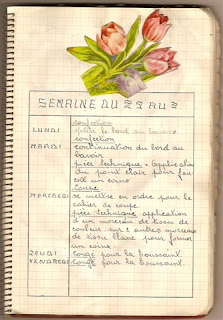 SEMAINE DU 29 AU 2
confection
LUNDI mettre le bord au
confection
MARDI continuation du bord au
bavoir
pièce technique: Application
du point clair pour fai
coupe
MERCREDI se mettre en ordre pour le
cahier de coupe
pièce technique application
d'un morceau de tissu de
couleur sur 1 autres morceau
de tissu blanc pour former
un coins
JEUDI congé pour la toussaint
VENDREDI congé pour la toussaint